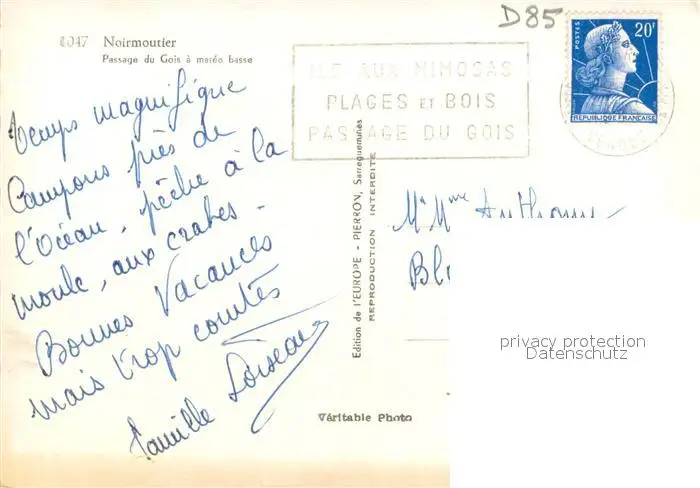 D85
4047 Noirmoutier
Passage du Gois à marée basse
POSTES
20F
REPUBLIQUE FRANÇAISE
ILE AUX MIMOSAS
PLAGES ET BOIS
PASSAGE DU GOIS
temps magnifique
Campons près de
l'Océan, pêche à la
moule, aux crabes.
Bonnes Vacances
mais trop courtes
famille Loiseau
Edition de l'EUROPE - PIERRON, Sarreguemines
REPRODUCTION INTERDITE
Mr Mme Anthony
Véritable Photo
privacy protection
Datenschutz